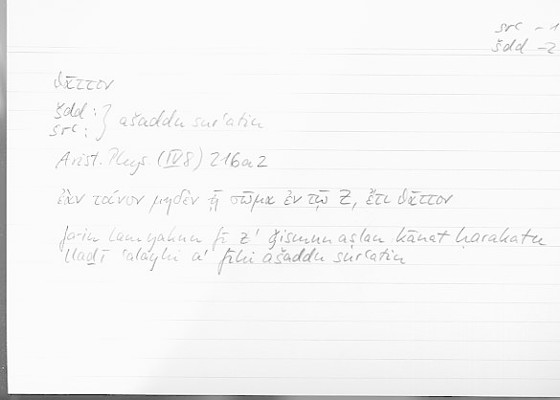 srʿ – 1
šdd – 2
θᾶττον
šdd : } ašaddu surʿatin
srʿ :
Arist. Phys. (IV 8) 216a2
ἐὰν τοίνυν μηδὲν ᾖ σῶμα ἐν τῷ Ζ, ἔτι θᾶττον
fa-in lam yakun fī z' ǧismun aṣlan kānat ḥarakatu
llaḏī ʿalayhi a' fīhi ašaddu surʿatin